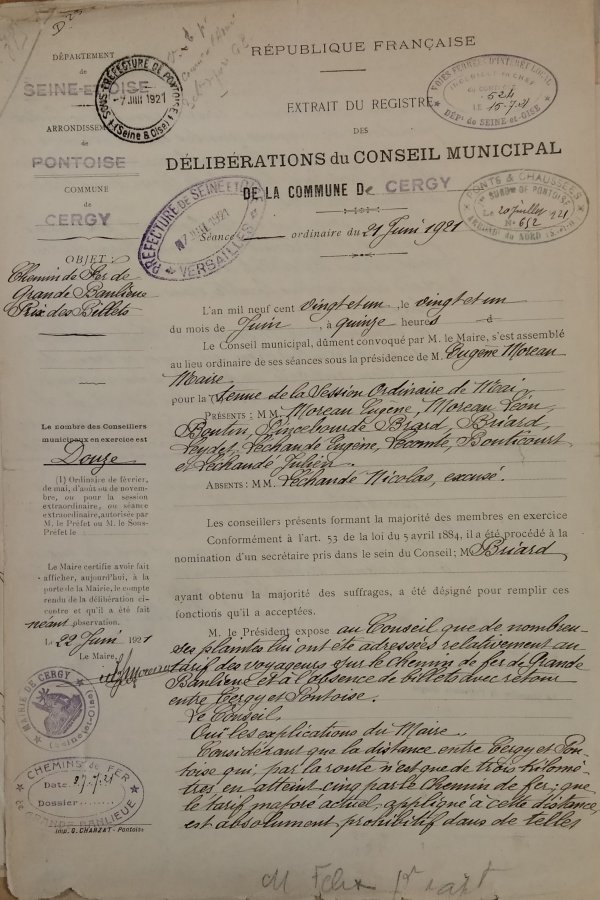 DÉPARTEMENT
de
SEINE-et-OISE
ARRONDISSEM
de
PONTOISE
COMMUNE
de
CERGY
OBJET
Chemin de Fer de
Grande Banlieue
Prix des Billets
Le nombre des Conseillers
municipaux en exercice est
Douze
(1) Ordinaire de février,
de mai, d'août ou de novem-
bre, ou pour la session
extraordinaire, ou séance
extraordinaire, autorisée par
M. le Préfet ou M. le Sous-
Préfet le
Le Maire certifie avoir fait
afficher, aujourd'hui, à la
porte de la Mairie, le compte
rendu de la délibération ci-
contre et qu'il a été fait
néant observation.
Le 22 Juin 1921
Le Maire,
MAIRIE DE CERGY
(Seine-et-Oise)
CHEMINS DE FER
Date: 27.7.21
Dossier
GRANDE BANLIEUE
Imp. G. CHANZAT - Pontoise
SOUS-PRÉFECTURE DE PONTOISE
-7 JUIL 1921
(Seine & Oise)
RÉPUBLIQUE FRANÇAISE
VOIES FERRÉES D'INTÉRÊT LOCAL
INGÉNIEUR EN CHEF
524
LE 15.7.21
DÉPt de SEINE-et-OISE
EXTRAIT DU REGISTRE
DES
DÉLIBÉRATIONS du CONSEIL MUNICIPAL
DE LA COMMUNE De CERGY
PRÉFECTURE DE SEINE ET OISE
7 JUIL 1921
VERSAILLES
PONTS & CHAUSSÉES
DE PONTOISE
Le 20 Juillet 1921
No 652
ARRONDt du NORD (S.-et-O.)
Séance ordinaire du 21 Juin 1921
L'an mil neuf cent vingt et un, le vingt et un
du mois de Juin, à quinze heures
Le Conseil municipal, dûment convoqué par M. le Maire, s'est assemblé
au lieu ordinaire de ses séances sous la présidence de M. Eugène Moreau
Maire
pour la tenue de la Session Ordinaire de Mai
PRÉSENTS : MM. Moreau Eugène, Moreau Léon,
Brard, Briard,
Leydet, Lechaudé Eugène, Lecomte, Bonticourt
et Lechaudé Julien.
ABSENTS : MM. Lechaudé Nicolas, excusé.
Les conseillers présents formant la majorité des membres en exercice
Conformément à l'art. 53 de la loi du 5 avril 1884, il a été procédé à la
nomination d'un secrétaire pris dans le sein du Conseil; M. Briard
ayant obtenu la majorité des suffrages, a été désigné pour remplir ces
fonctions qu'il a acceptées.
M. le Président expose au Conseil que de nombreu-
ses plaintes lui ont été adressées relativement au
tarif des voyageurs sur le Chemin de fer de Grande
Banlieue et à l'absence de billets avec retour
entre Cergy et Pontoise.
Le Conseil,
Ouï les explications du Maire,
Considérant que la distance entre Cergy et Pon-
toise qui, par la route n'est que de trois kilomè-
tres en atteint cinq par le Chemin de fer ; que
le tarif majoré actuel, appliqué à cette distance,
est absolument prohibitif dans de telles